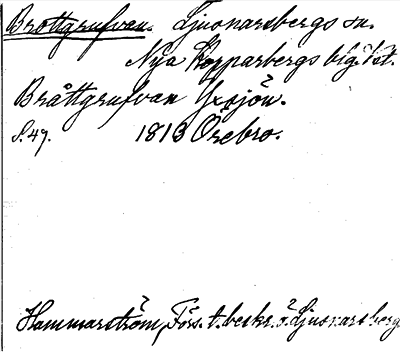 Brottgrufvan. Ljusnarsbergs sn.
Nya Kopparbergs blg. Vst.
Bråttgrufvan Yxsjön.
S. 47. 1813 Örebro.
Hammarström, Förs. t. beskr. ö. Ljusnarsberg